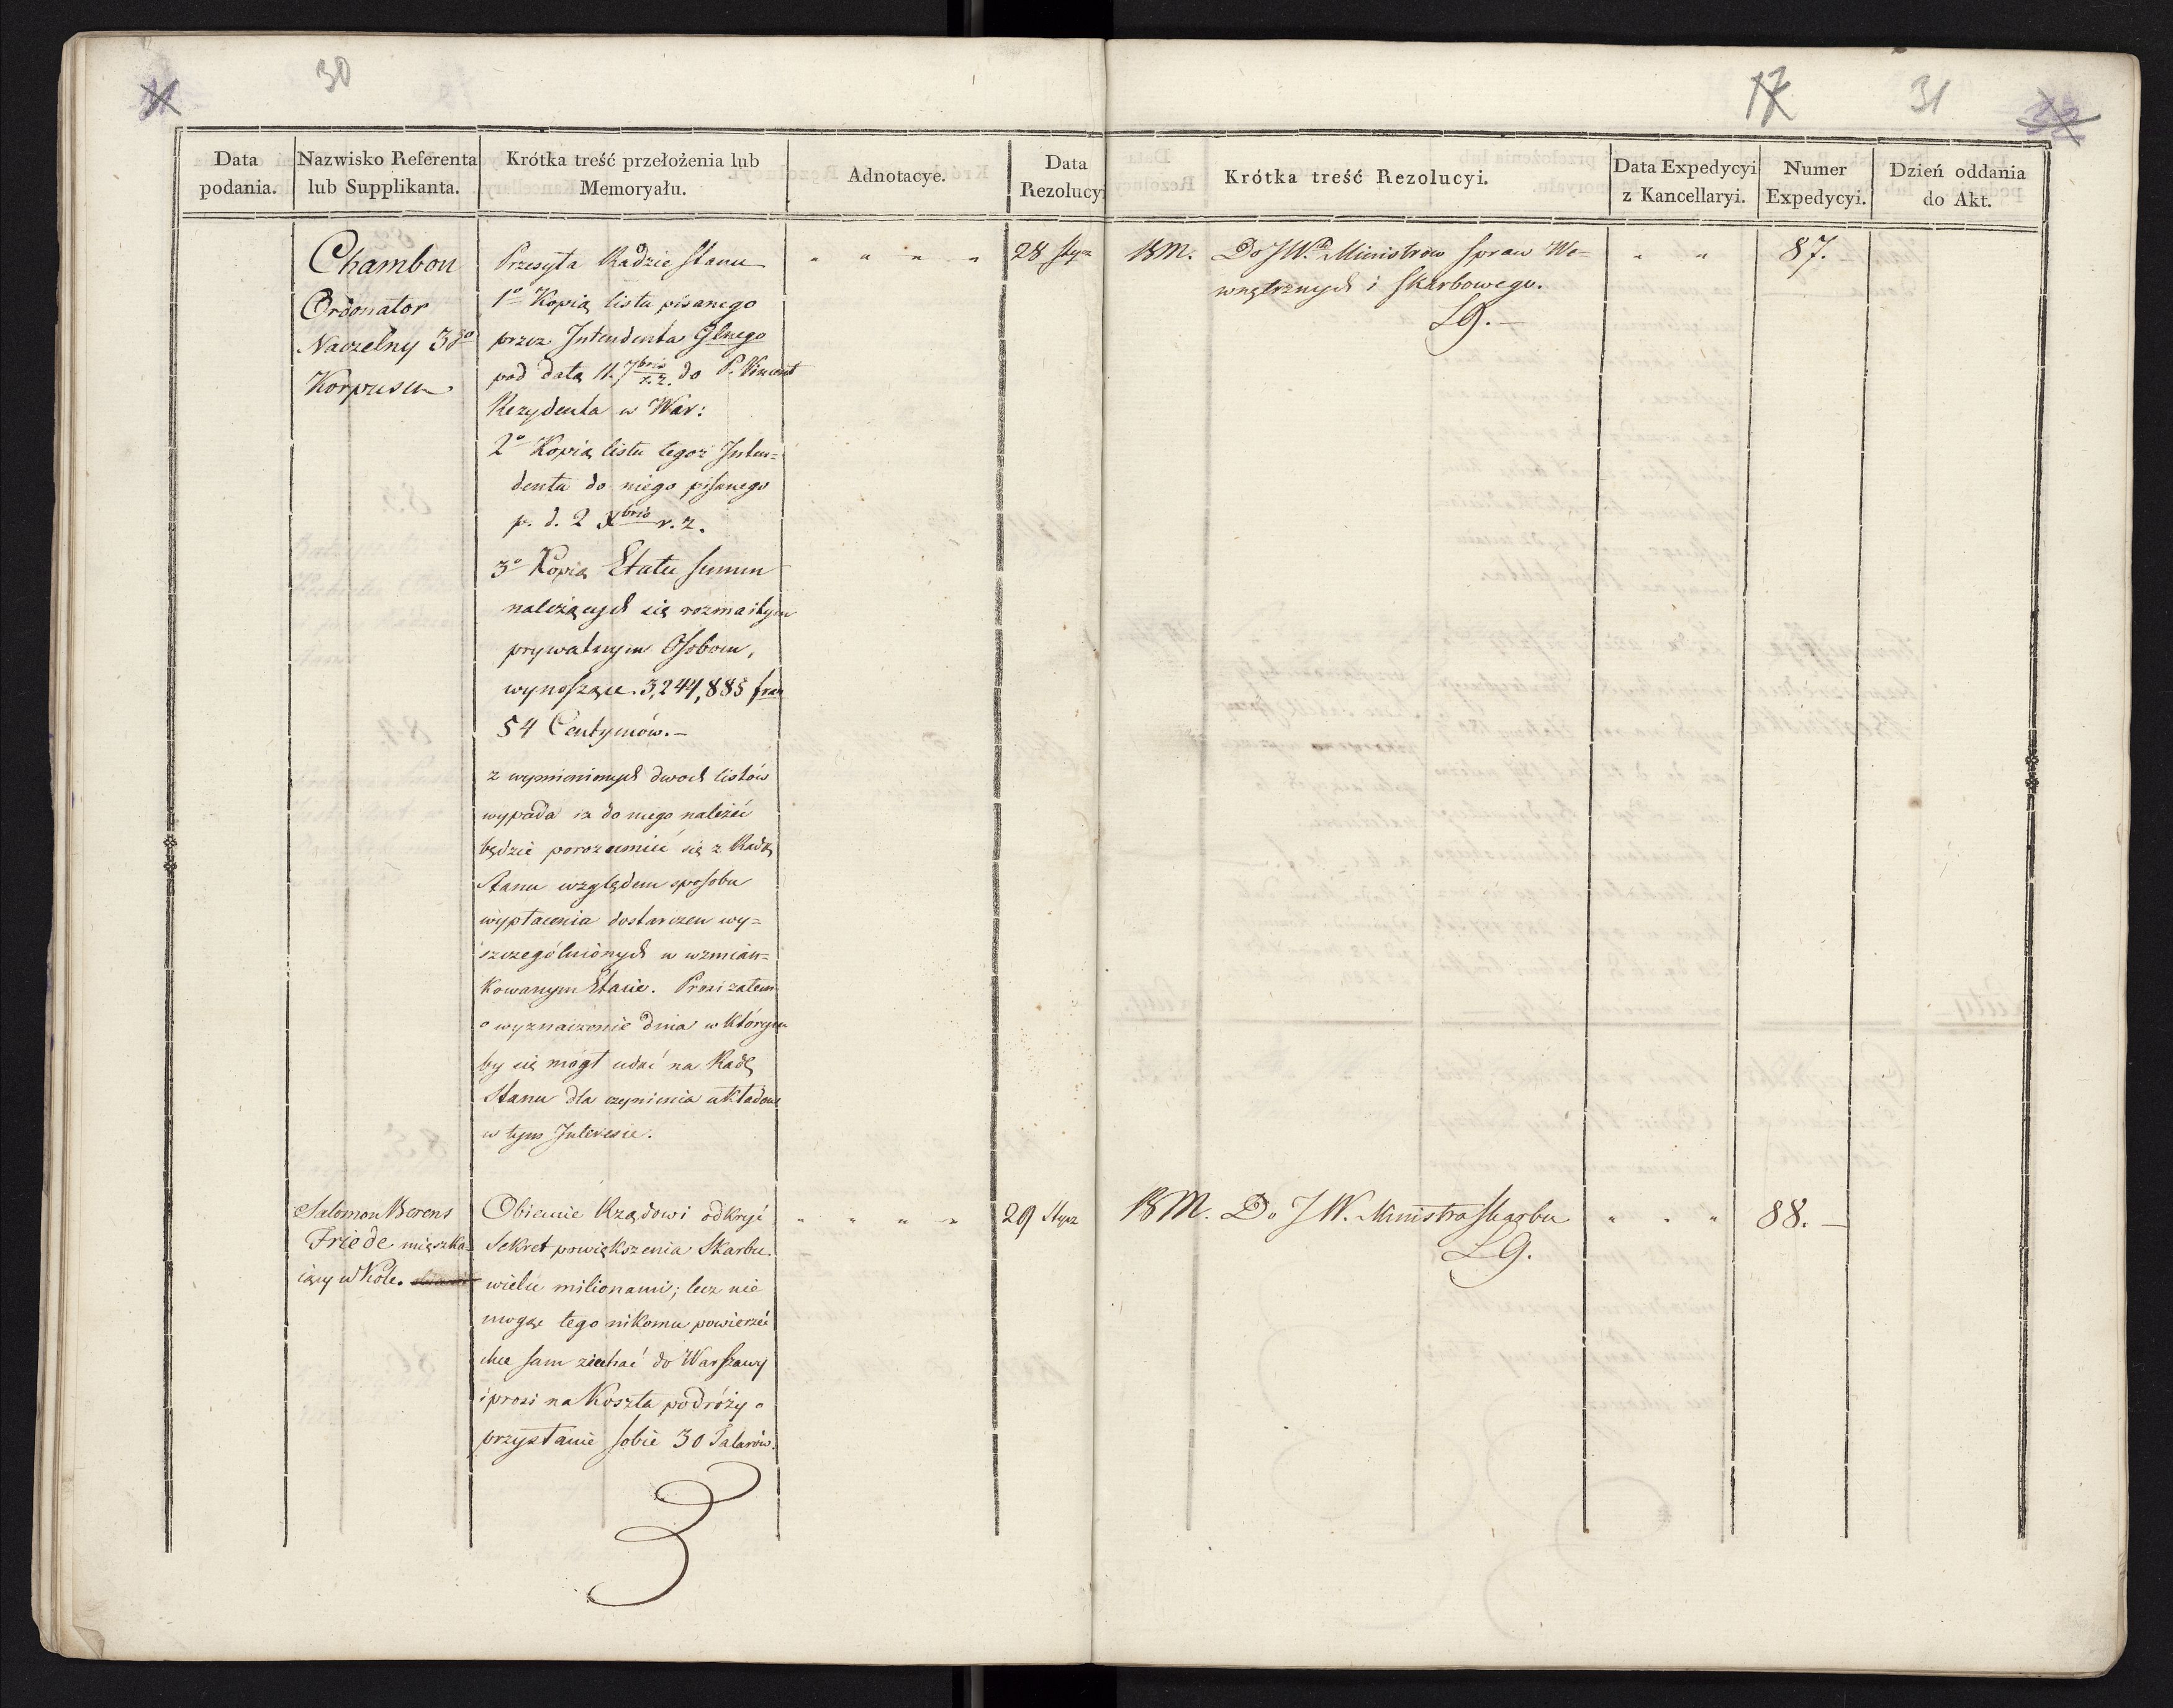 30
31
17
31
32
Data
podania.
Nazwisko Referenta
lub Supplikanta.
Krótka treść przełożenia lub
Memoryału.
Adnotacye.
Data
Rezolucyi
Krótka treść Rezolucyi.
Data Expedycyi
z Kancellaryi.
Numer
Expedycyi.
Dzień oddania
do Akt.
Chambon
Ordonator
Naczelny 3go
Korpusu
Przesyła Radzie Stanu
1o Kopią listu pisanego
przez Intendenta Glnego
pod datą 11. 7bris r. z. do P. Vincent
Rezydenta w War:
2o Kopią listu tegoż Inten=
denta do niego pisanego
p. d. 2 Xbris r. z.
3o Kopią Etatu summ
należących się rozmaitym
prywatnym Osobom,
wynoszące 3,244,885 fran
54 Centymów.—
z wymienionych dwoch listów
wypada iż do niego należéć
będzie porozumieć się z Radą
Stanu względem sposobu
wypłacenia dostarczeń wy=
szczególnionych w wzmian=
kowanym Etacie. Prosi zatem
o wyznaczenie dnia w którym
by się mogł udać na Radę
Stanu dla czynienia układów
w tym Interesie.
" " " "
28 Stycz
BM.
Do JW. Ministrów Spraw We=
wnętrznych i Skarbowego.
LG.—
" "
87.
Salomon Berens
Friede mieszka=
iący w Kole.
Obiecuie Rządowi odkryć
Sekret powiększenia Skarbu
wielu milionami; lecz nie
mogąc tego nikomu powierzéć
chce sam ziechać do Warszawy
i prosi na Koszta podróży o
przysłanie sobie 30 Talarów.
" " " "
29 Stycz
BM.
Do JW. Ministra Skarbu
LG.
" " "
88.—